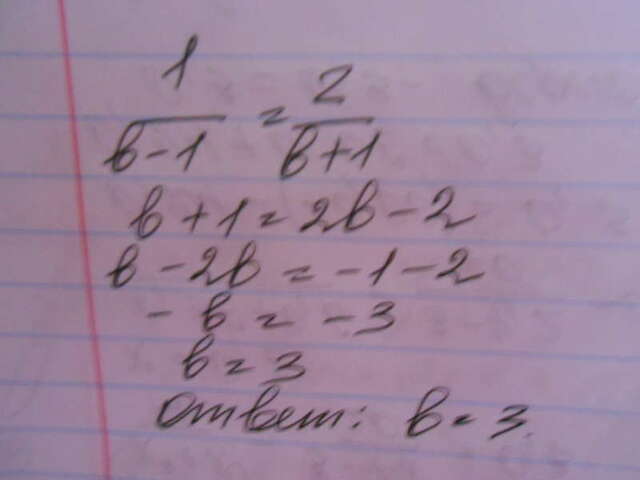 1/(в-1) = 2/(в+1)
в+1=2в-2
в-2в=-1-2
-в=-3
в=3
Ответ: в=3.